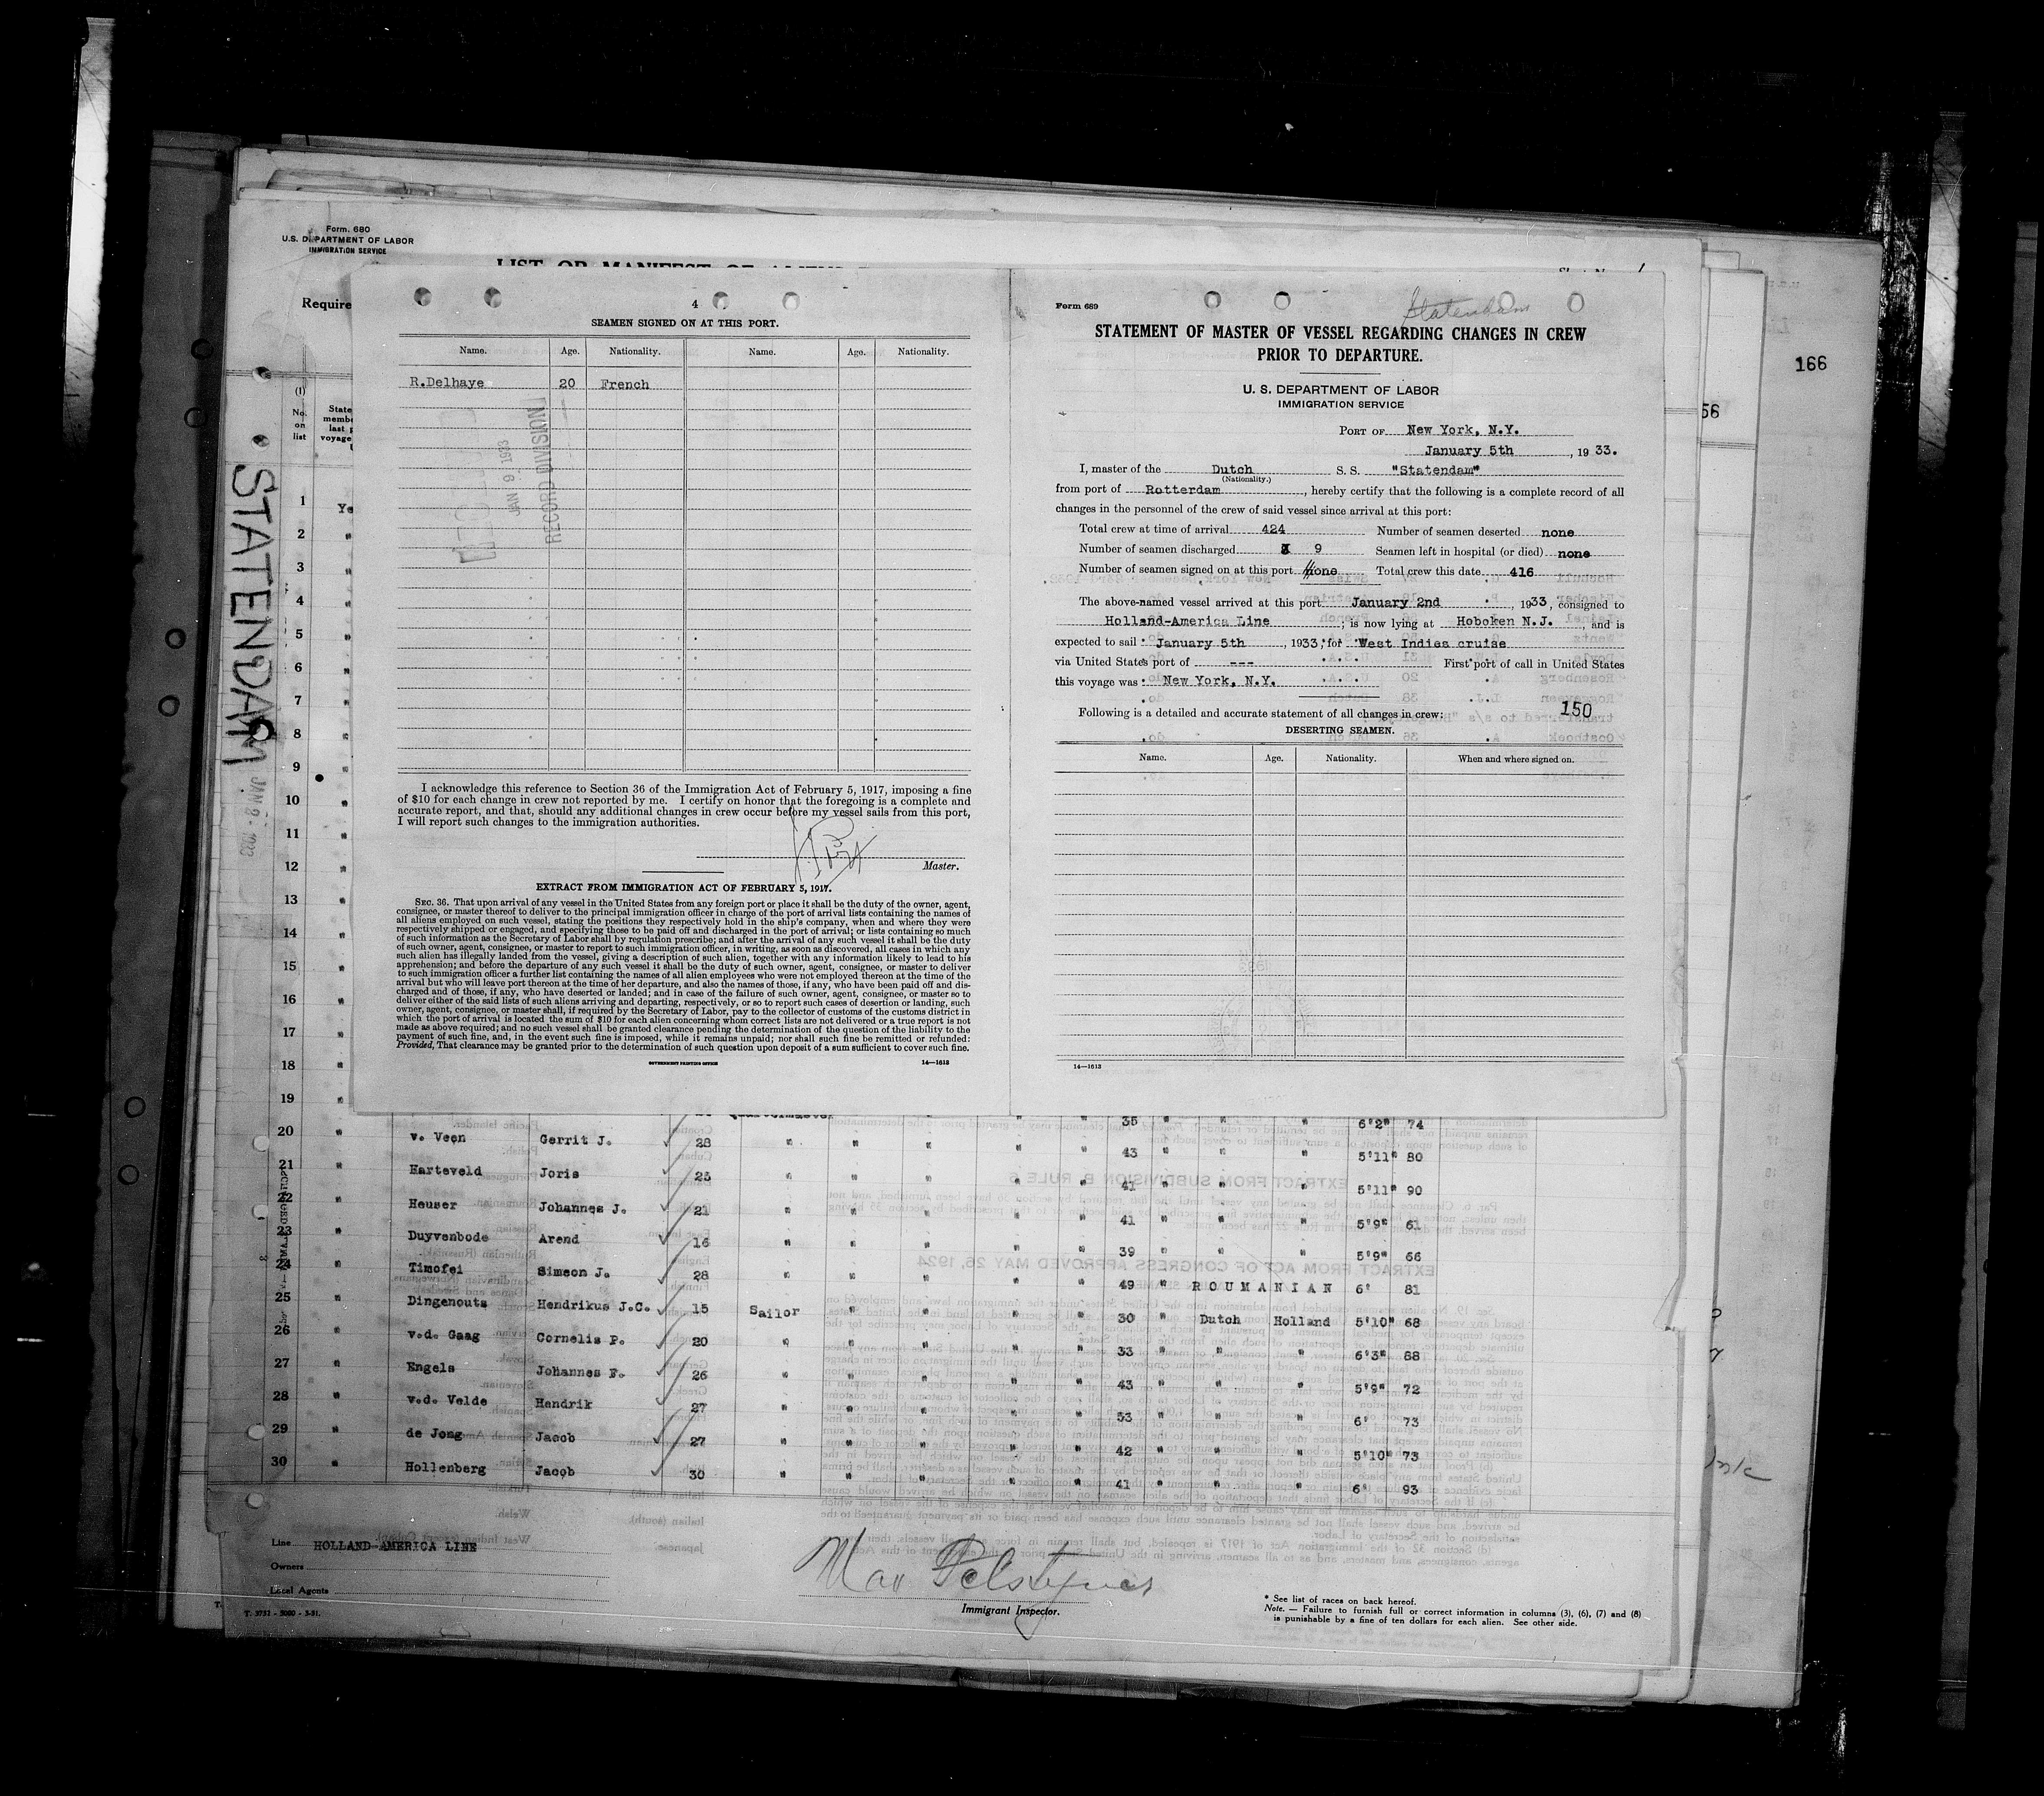 Form. 680
U.S. DEPARTMENT OF LABOR
IMMIGRATION SERVICE
LIST OR MANIFEST OF ALIENS
Require
(1)
No. on list
State
membe
last p
voyage
STATENDAM
166
56
4
SEAMEN SIGNED ON AT THIS PORT.
Name. Age. Nationality. Name. Age. Nationality.
R.Delhaye 20 French
JAN 9 1933
RECORD DIVISION
I acknowledge this reference to Section 36 of the Immigration Act of February 5, 1917, imposing a fine
of $10 for each change in crew not reported by me. I certify on honor that the foregoing is a complete and
accurate report, and that, should any additional changes in crew occur before my vessel sails from this port,
I will report such changes to the immigration authorities.
Master.
EXTRACT FROM IMMIGRATION ACT OF FEBRUARY 5, 1917.
SEC. 36. That upon arrival of any vessel in the United States from any foreign port or place it shall be the duty of the owner, agent,
consignee, or master thereof to deliver to the principal immigration officer in charge of the port of arrival lists containing the names of
all aliens employed on such vessel, stating the positions they respectively hold in the ship's company, when and where they were
respectively shipped or engaged, and specifying those to be paid off and discharged in the port of arrival; or lists containing so much
of such information as the Secretary of Labor shall by regulation prescribe; and after the arrival of any such vessel it shall be the duty
of such owner, agent, consignee, or master to report to such immigration officer, in writing, as soon as discovered, all cases in which any
such alien has illegally landed from the vessel, giving a description of such alien, together with any information likely to lead to his
apprehension; and before the departure of any such vessel it shall be the duty of such owner, agent, consignee, or master to deliver
to such immigration officer a further list containing the names of all alien employees who were not employed thereon at the time of the
arrival but who will leave port thereon at the time of her departure, and also the names of those, if any, who have been paid off and dis-
charged and of those, if any, who have deserted or landed; and in case of the failure of such owner, agent, consignee, or master so to
deliver either of the said lists of such aliens arriving and departing, respectively, or so to report such cases of desertion or landing, such
owner, agent, consignee, or master shall, if required by the Secretary of Labor, pay to the collector of customs of the customs district in
which the port of arrival is located the sum of $10 for each alien concerning whom correct lists are not delivered or a true report is not
made as above required; and no such vessel shall be granted clearance pending the determination of the question of the liability to the
payment of such fine, and, in the event such fine is imposed, while it remains unpaid; nor shall such fine be remitted or refunded:
Provided, That clearance may be granted prior to the determination of such question upon deposit of a sum sufficient to cover such fine.
GOVERNMENT PRINTING OFFICE 14—1613
Form 689
Statendam
STATEMENT OF MASTER OF VESSEL REGARDING CHANGES IN CREW
PRIOR TO DEPARTURE.
U. S. DEPARTMENT OF LABOR
IMMIGRATION SERVICE
PORT OF New York, N.Y.
January 5th, 1933.
I, master of the Dutch S. S. "Statendam"
(Nationality.)
from port of Rotterdam, hereby certify that the following is a complete record of all
changes in the personnel of the crew of said vessel since arrival at this port:
Total crew at time of arrival 424 Number of seamen deserted none
Number of seamen discharged 9 Seamen left in hospital (or died) none
Number of seamen signed on at this port none Total crew this date 416
The above-named vessel arrived at this port January 2nd, 1933, consigned to
Holland-America Line; is now lying at Hoboken N.J., and is
expected to sail January 5th, 1933, for West Indies cruise
via United States port of --- First port of call in United States
this voyage was New York, N.Y.
150
Following is a detailed and accurate statement of all changes in crew:
DESERTING SEAMEN.
Name. Age. Nationality. When and where signed on.
14—1613
1
2
3
4
5
6
7
8
9
10
11
12
13
14
15
16
17
18
19
35 " " " 6'2" 74
20 " v. Veen Gerrit J. 28 " " " " 43 " " " 5'11" 80
21 " Harteveld Joris 23 " " " " 41 " " " 5'11" 90
22 " Heuser Johannes J. 21 " " " " 41 " " " 5'9" 61
23 " Duyvenbode Arend 16 " " " " 39 " " " 5'9" 66
24 " Timofei Simeon J. 28 " " " " 49 " ROUMANIAN 6' 81
25 " Dingenouts Hendrikus J.C. 15 Sailor " " " 30 " Dutch Holland 5'10" 68
26 " v.d. Gaag Cornelis P. 20 " " " " 33 " " " 6'3" 88
27 " Engels Johannes F. 26 " " " " 43 " " " 5'9" 72
28 " v.d. Velde Hendrik 27 " " " " 53 " " " 6' 73
29 " de Jong Jacob 27 " " " " 42 " " " 5'10" 73
30 " Hollenberg Jacob 30 " " " " 41 " " " 6' 93
Line HOLLAND-AMERICA LINE
Owners
Local Agents
T. 3731 - 5000 - 3-31.
Immigrant Inspector.
* See list of races on back hereof.
Note. — Failure to furnish full or correct information in columns (3), (6), (7) and (8)
is punishable by a fine of ten dollars for each alien. See other side.